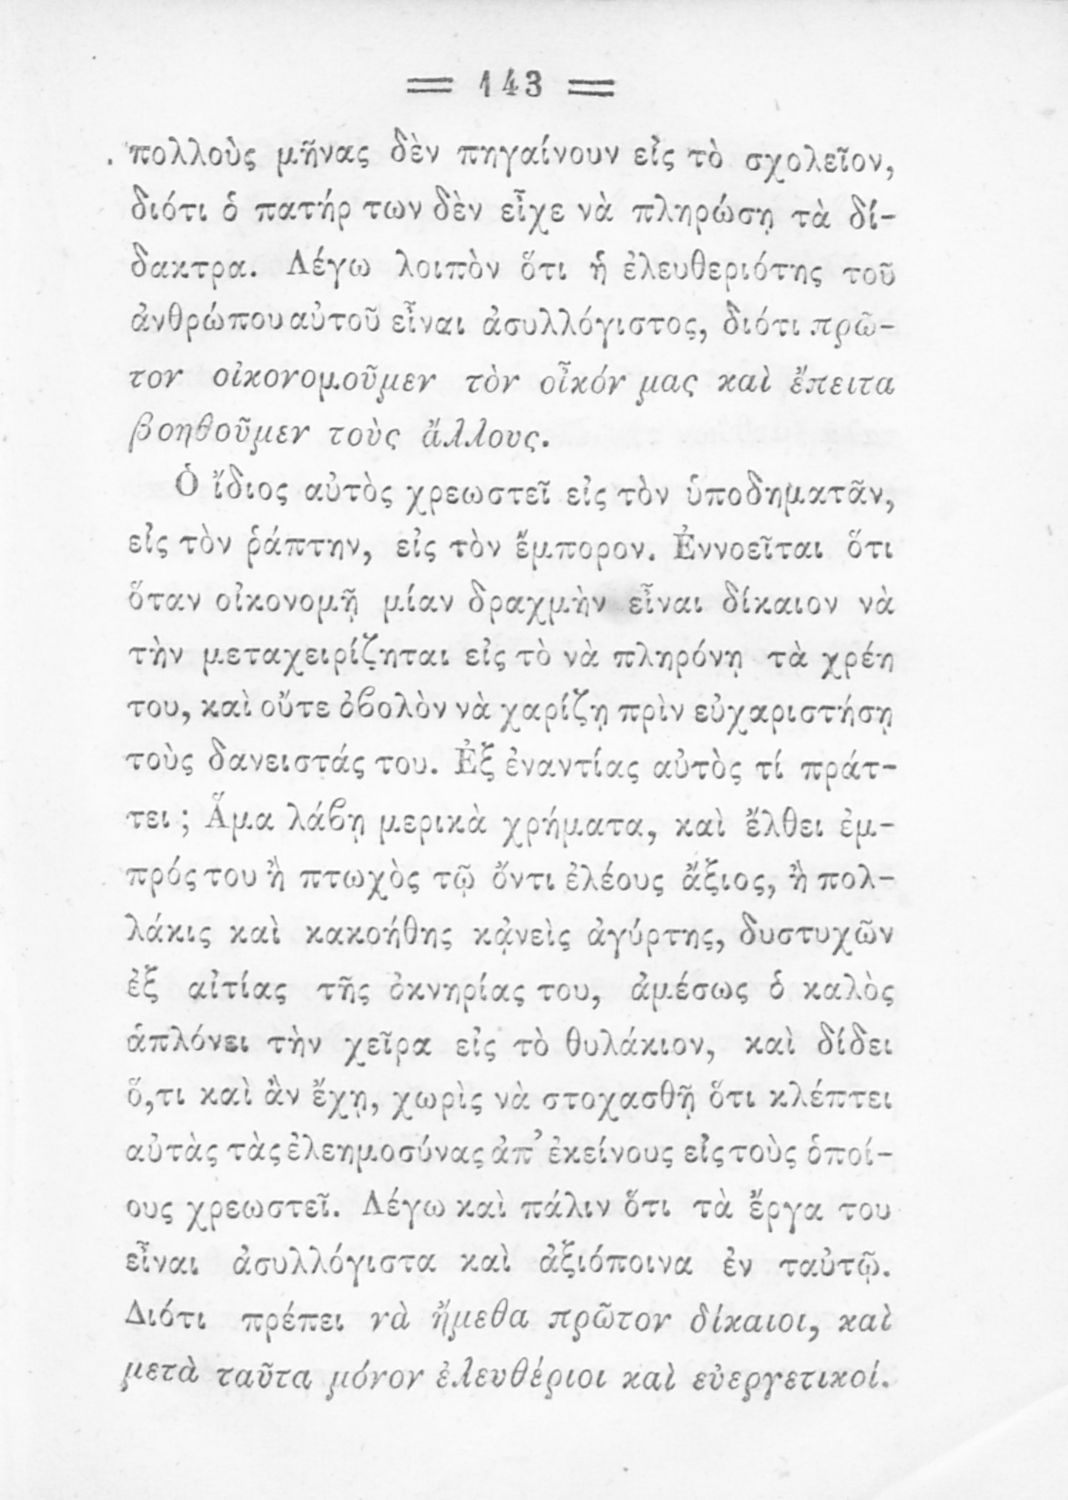 = 143 =
πολλοὺς μῆνας δὲν πηγαίνουν εἰς τὸ σχολεῖον,
διότι ὁ πατήρ των δὲν εἶχε νὰ πληρώσῃ τὰ δί-
δακτρα. Λέγω λοιπὸν ὅτι ἡ ἐλευθεριότης τοῦ
ἀνθρώπου αὐτοῦ εἶναι ἀσυλλόγιστος, διότι πρῶ-
τον οἰκονομοῦμεν τὸν οἶκόν μας καὶ ἔπειτα
βοηθοῦμεν τοὺς ἄλλους.
Ὁ ἴδιος αὐτὸς χρεωστεῖ εἰς τὸν ὑποδηματᾶν,
εἰς τὸν ῥάπτην, εἰς τὸν ἔμπορον. Ἐννοεῖται ὅτι
ὅταν οἰκονομῇ μίαν δραχμὴν εἶναι δίκαιον νὰ
τὴν μεταχειρίζηται εἰς τὸ νὰ πληρόνῃ τὰ χρέη
του, καὶ οὔτε ὀϐολὸν νὰ χαρίζῃ πρὶν εὐχαριστήσῃ
τοὺς δανειστάς του. Ἐξ ἐναντίας αὐτὸς τί πράτ-
τει ; Ἅμα λάϐῃ μερικὰ χρήματα, καὶ ἔλθει ἐμ-
πρός του ἢ πτωχὸς τῷ ὄντι ἐλέους ἄξιος, ἢ πολ-
λάκις καὶ κακοήθης κᾀνεὶς ἀγύρτης, δυστυχῶν
ἐξ αἰτίας τῆς ὀκνηρίας του, ἀμέσως ὁ καλὸς
ἁπλόνει τὴν χεῖρα εἰς τὸ θυλάκιον, καὶ δίδει
ὅ,τι καὶ ἂν ἔχῃ, χωρὶς νὰ στοχασθῇ ὅτι κλέπτει
αὐτὰς τὰς ἐλεημοσύνας ἀπ’ ἐκείνους εἰς τοὺς ὁποί-
ους χρεωστεῖ. Λέγω καὶ πάλιν ὅτι τὰ ἔργα του
εἶναι ἀσυλλόγιστα καὶ ἀξιόποινα ἐν ταὐτῷ.
Διότι πρέπει νὰ ἤμεθα πρῶτον δίκαιοι, καὶ
μετὰ ταῦτα μόνον ἐλευθέριοι καὶ εὐεργετικοί.